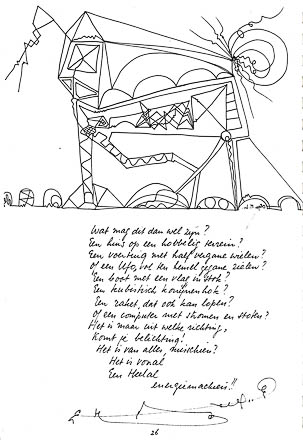 Wat mag dit dan wel zijn?
Een huis op een hobbelig terrein?
Een voertuig met half vegane wielen?
Of een Ufo, vol ten hemel gegane zielen?
Een boot met een vlag in stok?
Een kubistisch konijnenhok?
Een raket, dat ook kan lopen?
Of een computer met stromen en stoten?
Het is maar uit welke richting,
Komt je belichting!
Het is van alles, misschien?
Het is vooral
Een Heelal
energiemachien!!
26